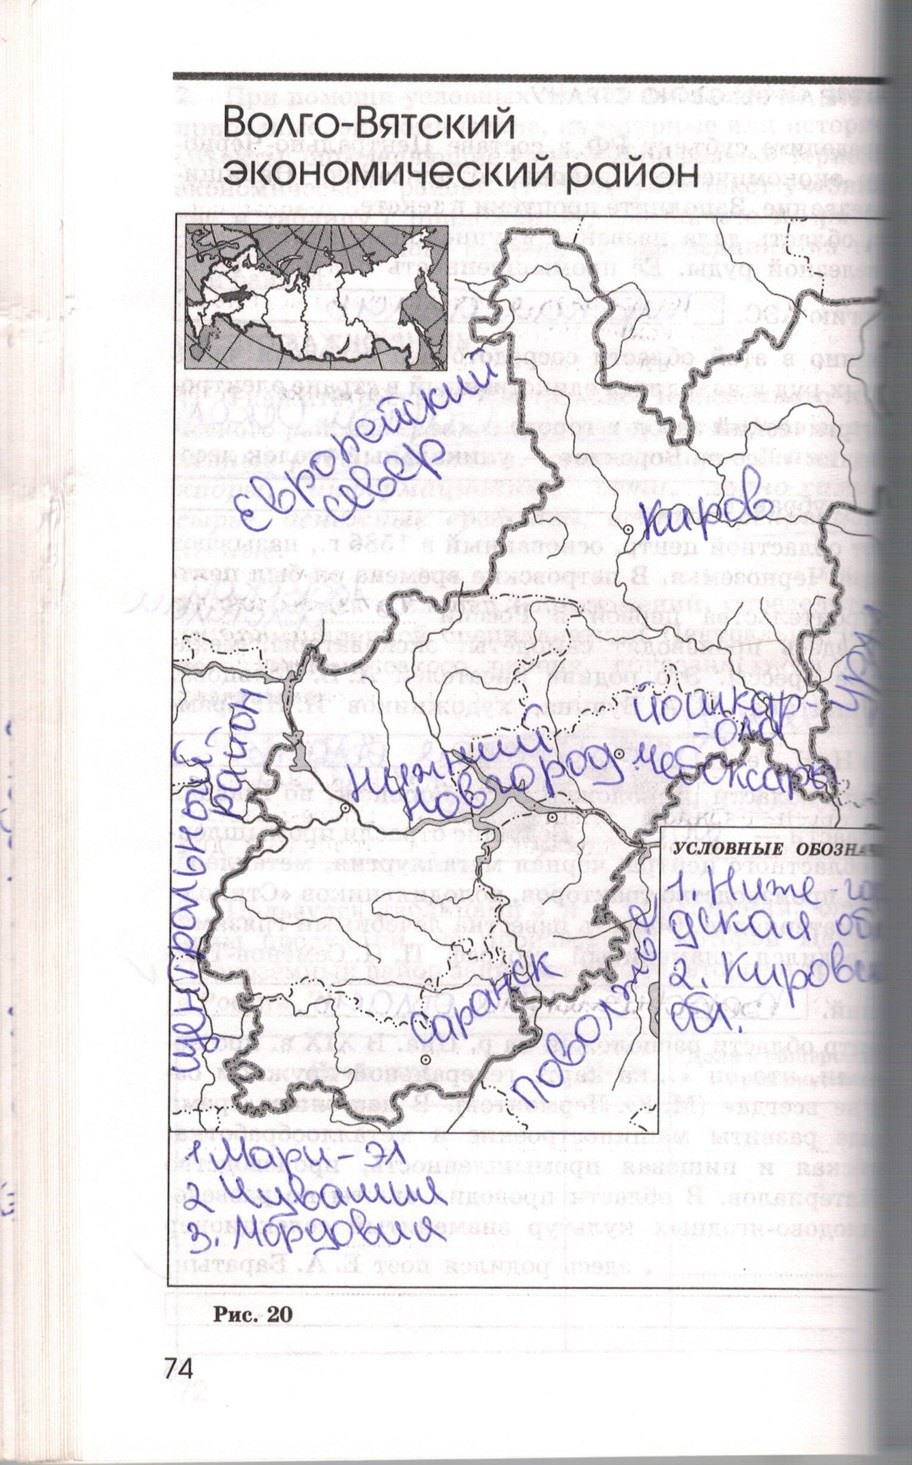 Волго-Вятский
экономический район
Европейский
север
Киров
Урал
Йошкар-
ола
Нижний
Новгород
Чебоксары
Центральный
район
УСЛОВНЫЕ ОБОЗНА
1. Ниже го
дская об
2. Кировс
обл.
Саранск
Поволжье
1 Мари-эл
2 Чувашия
3. Мордовия
Рис. 20
74